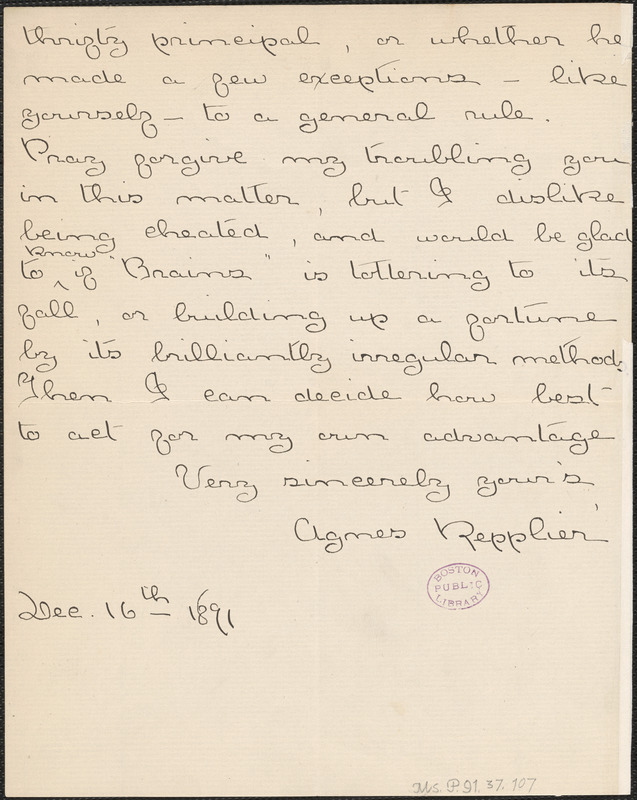 thrifty principal, or whether he
made a few exceptions – like
yourself – to a general rule.
Pray forgive my troubling you
in this matter, but I dislike
being cheated, and would be glad
know
to ^ if "Brains" is tottering to its
fall, or building up a fortune
by its brilliantly irregular methods.
Then I can decide how best
to act for my own advantage
Very sincerely your's
Agnes Repplier
BOSTON
PUBLIC
LIBRARY
Dec. 16th – 1891
Ms. P. 91. 37. 107